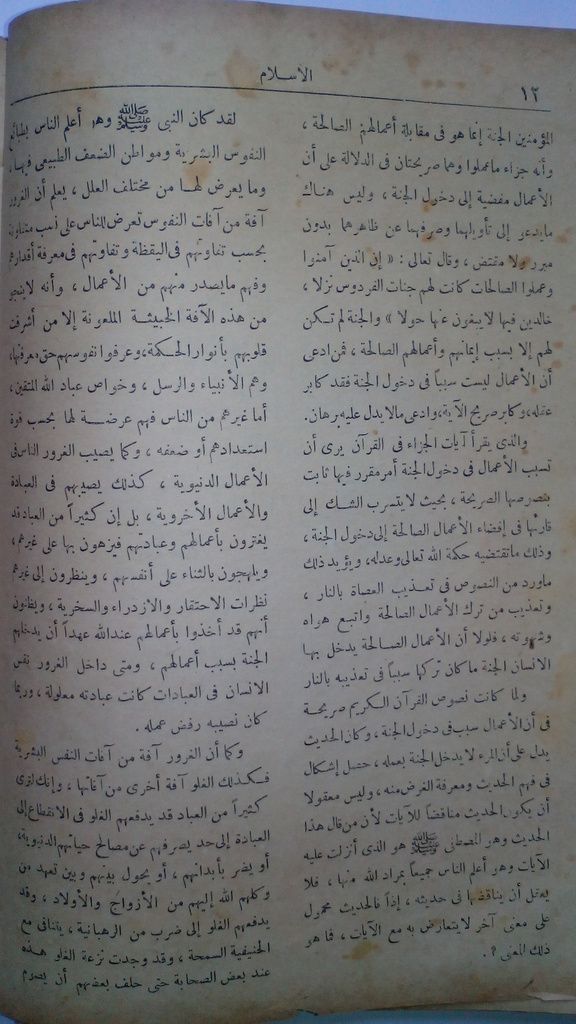 ١٢
الاسلام
المؤمنين الجنة إنما هو فى مقابلة أعمالهم الصالحة ،
وأنه جزاء ماعملوا وهما صريحتان فى الدلالة على أن
الأعمال مفضية إلى دخول الجنة ، وليس هناك
مايدعو إلى تأويلهما وصرفهما عن ظاهرهما بدون
مبرر ولا مقتض ، وقال تعالى : « إن الذين آمنوا
وعملوا الصالحات كانت لهم جنات الفردوس نزلا ،
خالدين فيها لا يبغون عنها حولا » والجنة لم تكن
لهم إلا بسبب إيمانهم وأعمالهم الصالحة ، فمن ادعى
أن الأعمال ليست سبباً فى دخول الجنة فقد كابر
عقله، وكابر صريح الآية، وادعى مالا يدل عليه برهان.
والذى يقرأ آيات الجزاء فى القرآن يرى أن
تسبب الأعمال فى دخول الجنة أمر مقرر فيها ثابت
بنصوصها الصريحة ، بحيث لا يتسرب الشك إلى
قارئها فى إفضاء الأعمال الصالحة إلى دخول الجنة ،
وذلك ماتقتضيه حكمة الله تعالى وعدله، ويؤيد ذلك
ماورد من النصوص فى تعذيب العصاة بالنار ،
وتعذيب من ترك الأعمال الصالحة واتبع هواه
وشهوته ، فلولا أن الأعمال الصالحة يدخل بها
الانسان الجنة ماكان تركها سبباً فى تعذيبه بالنار
ولما كانت نصوص القرآن الكريم صريحة
فى أن الأعمال سبب فى دخول الجنة ، وكان الحديث
يدل على أن المرء لا يدخل الجنة بعمله ، حصل إشكال
فى فهم الحديث ومعرفة الغرض منه ، وليس معقولا
أن يكون الحديث مناقضاً للآيات لأن من قال هذا
الحديث وهو المصطفى ﷺ هو الذى أنزلت عليه
الآيات وهو أعلم الناس جميعاً بمراد الله منها ، فلا
يعقل أن يناقضها فى حديثه ، إذاً فالحديث محمول
على معنى آخر لا يتعارض به مع الآيات ، فما هو
ذلك المعنى ؟ .
لقد كان النبى ﷺ وهو أعلم الناس بطبائع
النفوس البشرية ومواطن الضعف الطبيعى فيها ،
وما يعرض لها من مختلف العلل ، يعلم أن الغرور
آفة من آفات النفوس تعرض للناس على نسب متفاوتة
بحسب تفاوتهم فى اليقظة وتفاوتهم فى معرفة أقدارهم
وفهم مايصدر منهم من الأعمال ، وأنه لاينجو
من هذه الآفة الخبيثة الملعونة إلا من أشرقت
قلوبهم بأنوار الحكمة، وعرفوا نفوسهم حق معرفتها،
وهم الأنبياء والرسل ، وخواص عباد الله المتقين ،
أما غيرهم من الناس فهم عرضة لها بحسب قوة
استعدادهم أو ضعفه ، وكما يصيب الغرور الناس فى
الأعمال الدنيوية ، كذلك يصيبهم فى العبادة
والأعمال الأخروية ، بل إن كثيراً من العباد قد
يغترون بأعمالهم وعبادتهم فيزهون بها على غيرهم ،
ويلهجون بالثناء على أنفسهم ، وينظرون إلى غيرهم
نظرات الاحتقار والازدراء والسخرية ، ويظنون
أنهم قد أخذوا بأعمالهم عند الله عهداً أن يدخلهم
الجنة بسبب أعمالهم ، ومتى داخل الغرور نفس
الانسان فى العبادات كانت عبادته معلولة ، وربما
كان نصيبه رفض عمله .
وكما أن الغرور آفة من آفات النفس البشرية
فكذلك الغلو آفة أخرى من آفاتها ، وإنك لترى
كثيراً من العباد قد يدفعهم الغلو فى الانقطاع إلى
العبادة إلى حد يصرفهم عن مصالح حياتهم الدنيوية،
أو يضر بأبدانهم ، أو يحول بينهم وبين تعهد من
وكلهم الله إليهم من الأزواج والأولاد ، وقد
يدفعهم الغلو إلى ضرب من الرهبانية ، يتنافى مع
الحنيفية السمحة ، وقد وجدت نزعة الغلو هذه
عند بعض الصحابة حتى حلف بعضهم أن يصوم